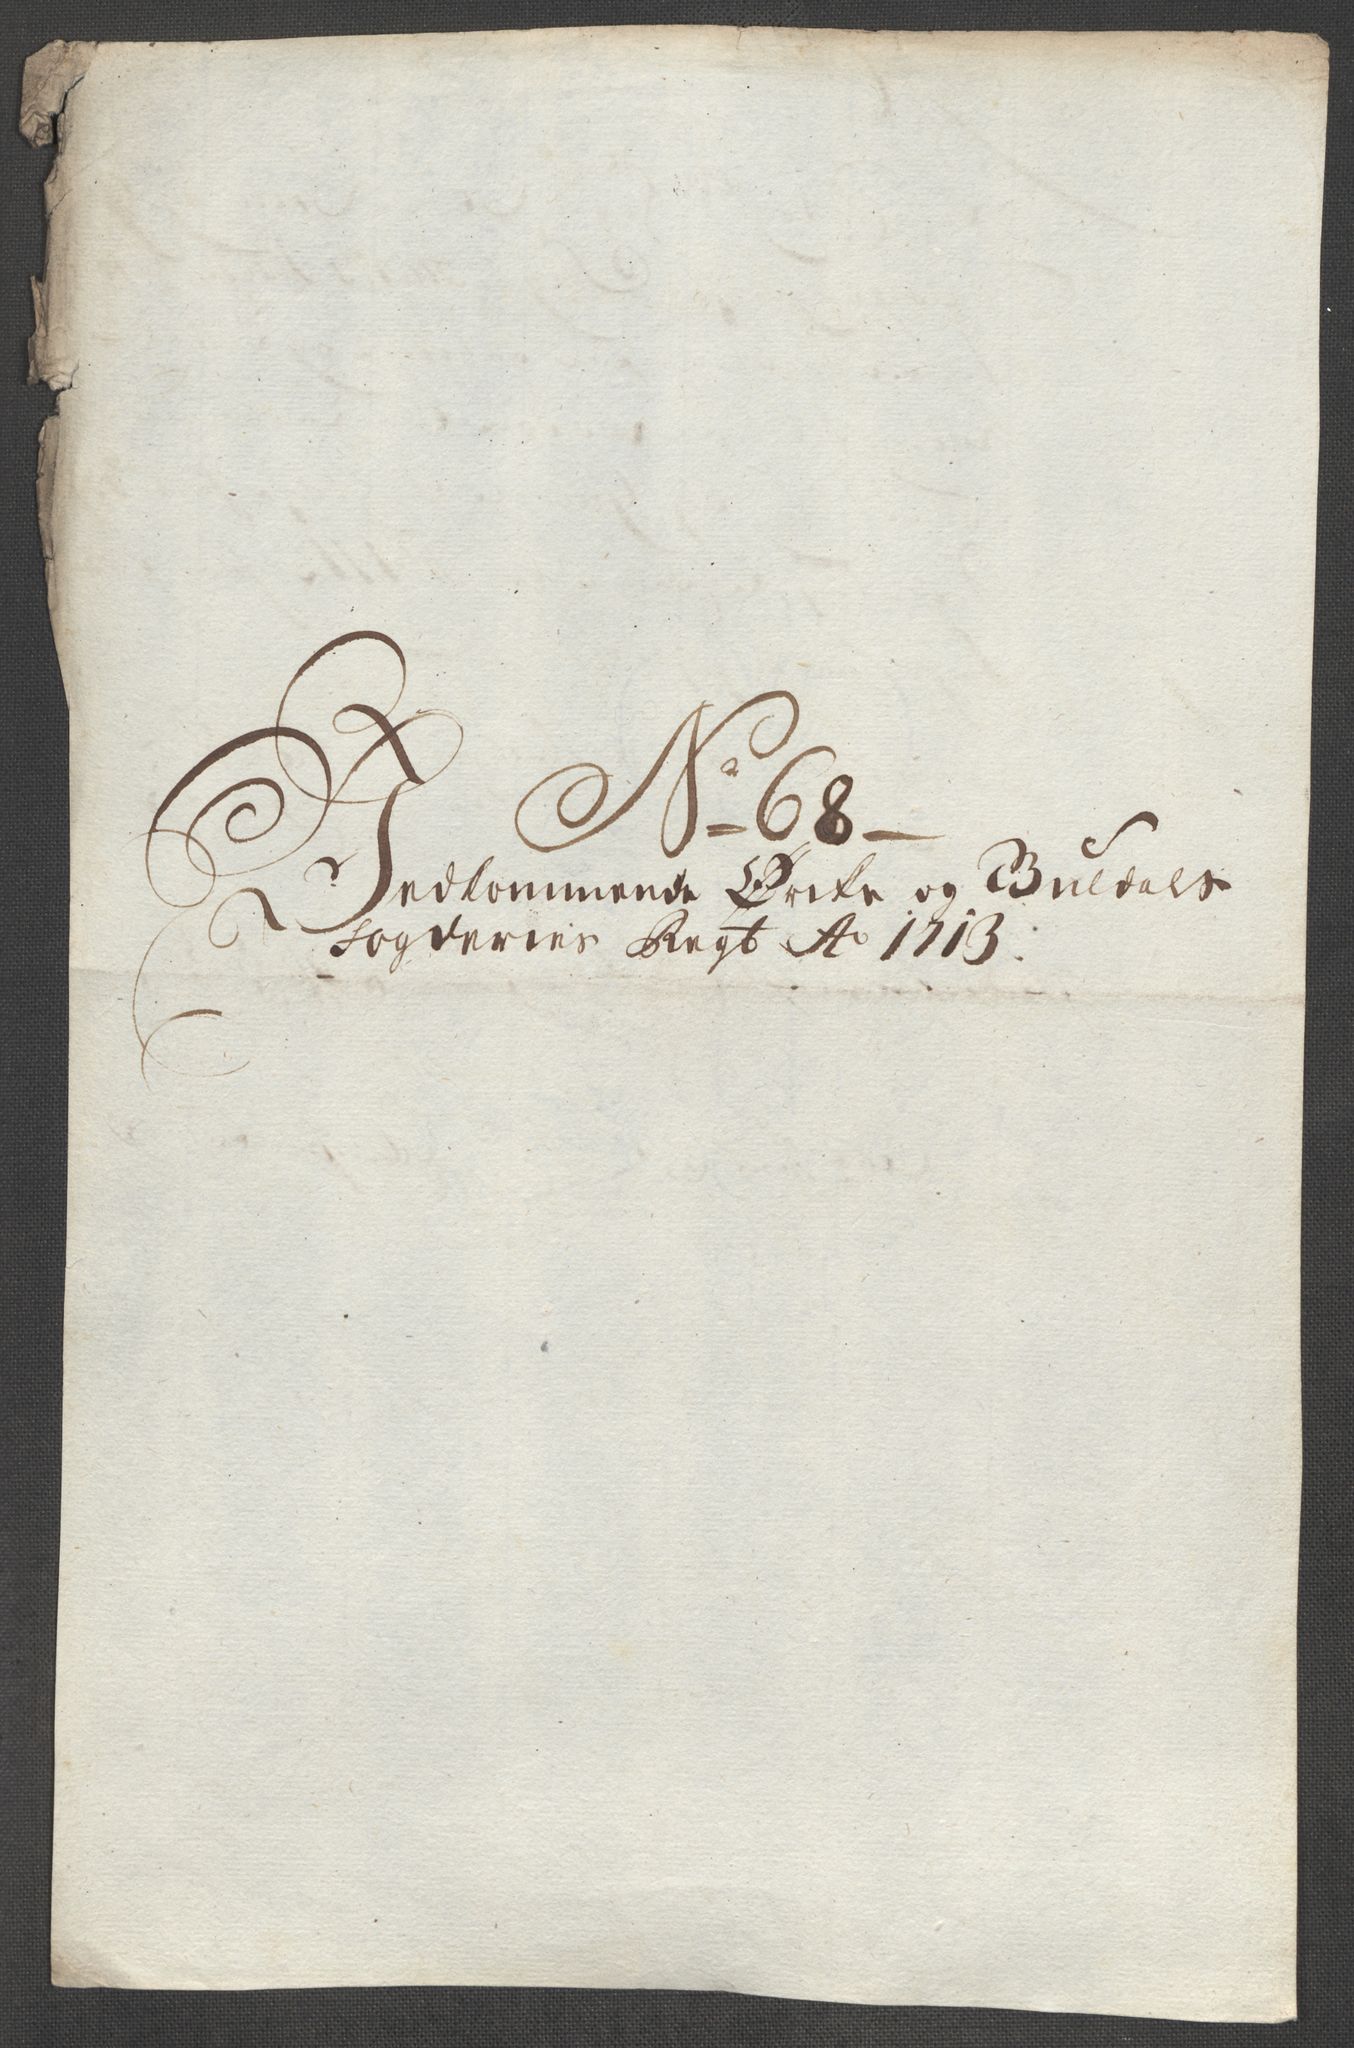 No 68
Vedkommende Ørcke og Guldals
fogderies Regb Ao 1713.